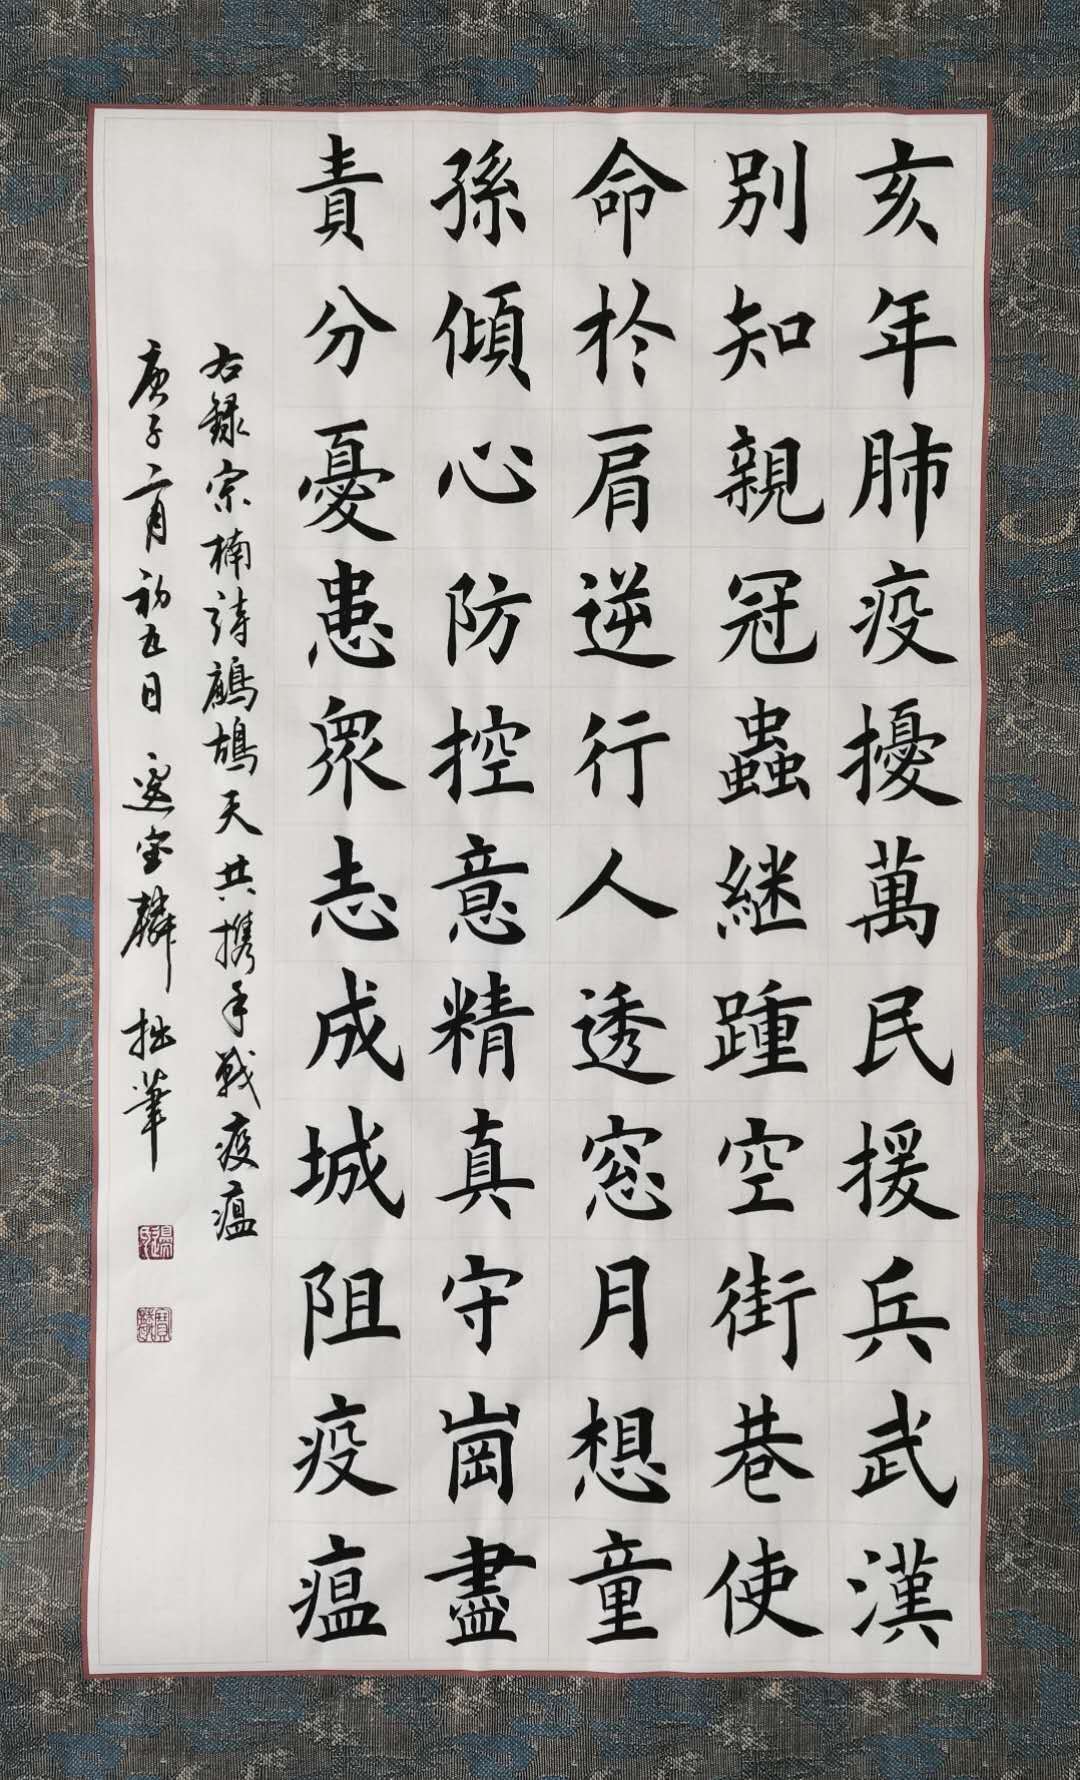 亥年肺疫擾萬民援兵武漢
別知親冠蟲継踵空街巷使
命於肩逆行人透窓月想童
孫傾心防控意精真守崗盡
責分憂患眾志成城阻疫瘟
右録宗楠詩鷓鴣天共携手戰疫瘟
庚子二月初五日 邊宝麟 拙筆